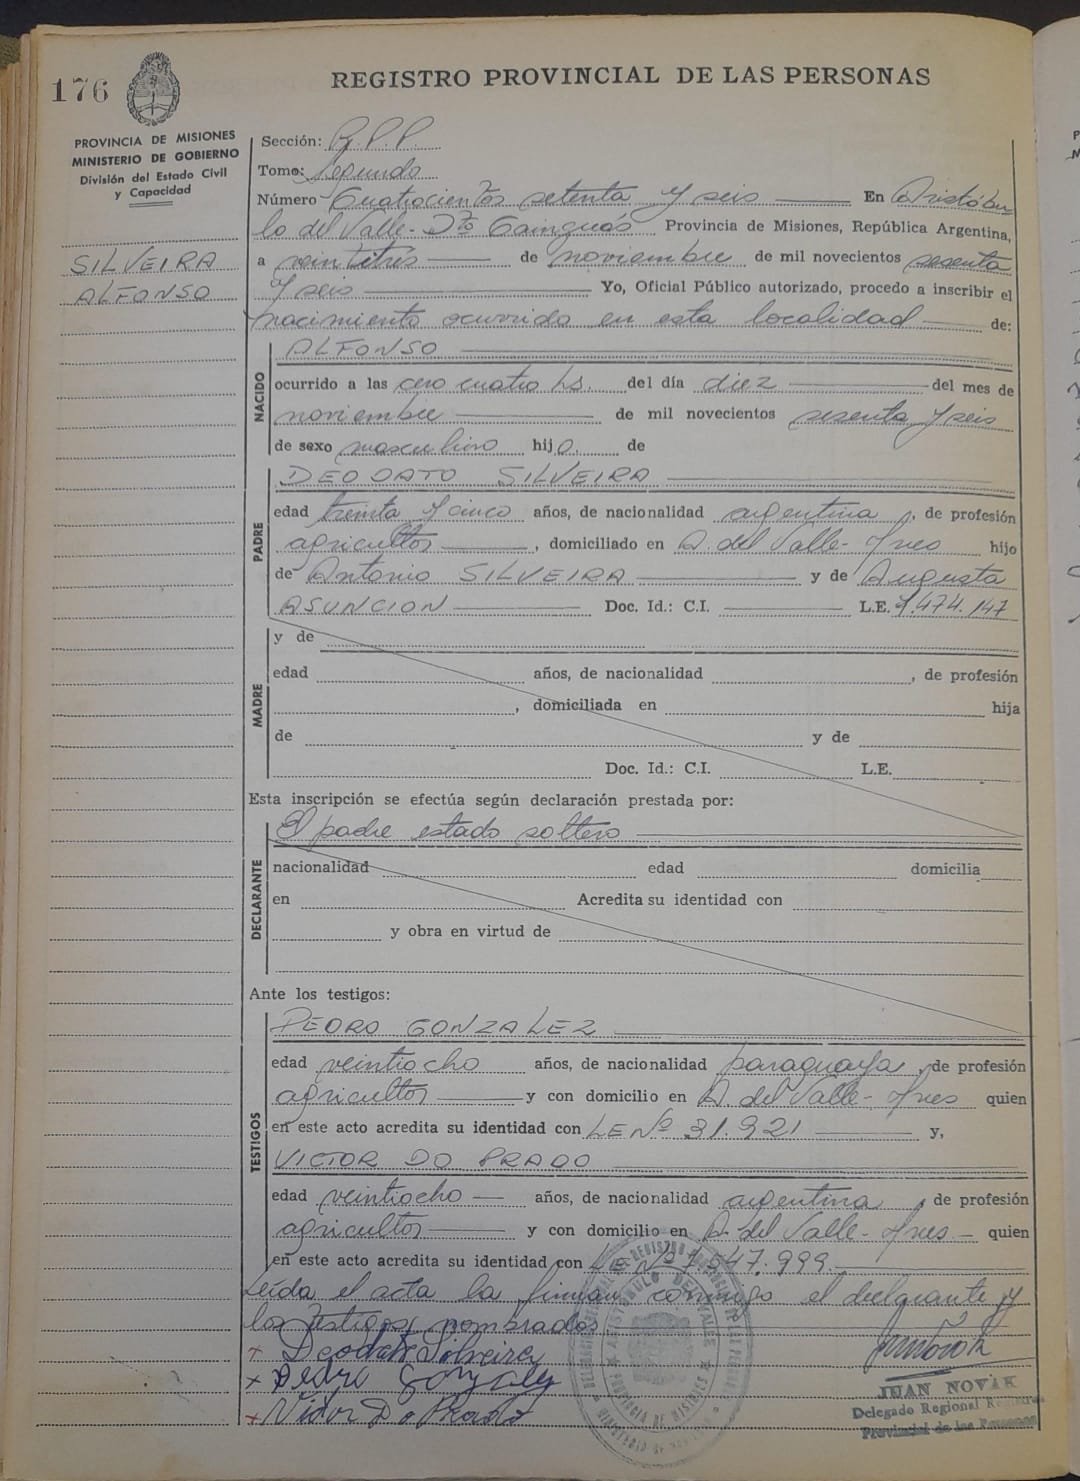 176
REGISTRO PROVINCIAL DE LAS PERSONAS
PROVINCIA DE MISIONES
MINISTERIO DE GOBIERNO
División del Estado Civil
y Capacidad
SILVEIRA
ALFONSO
Sección: R.P.P.
Tomo: Segundo
Número Cuatrocientos setenta y seis En Aristóbu
lo del Valle - Dto Cainguás Provincia de Misiones, República Argentina,
a veintitres de noviembre de mil novecientos sesenta
y seis Yo, Oficial Público autorizado, procedo a inscribir el
nacimiento ocurrido en esta localidad de:
NACIDO
ALFONSO
ocurrido a las cero cuatro hs. del día diez del mes de
noviembre de mil novecientos sesenta y seis
de sexo masculino hijo. de
PADRE
DEODATO SILVEIRA
edad treinta y cinco años, de nacionalidad argentina, de profesión
agricultor, domiciliado en A. del Valle - Mnes hijo
de Antonio SILVEIRA y de Augusta
ASUNCION Doc. Id.: C.I. L.E. 7.474.147
MADRE
y de
edad años, de nacionalidad , de profesión
, domiciliada en hija
de y de
Doc. Id.: C.I. L.E.
Esta inscripción se efectúa según declaración prestada por:
DECLARANTE
El padre estado soltero
nacionalidad edad domicilia
en Acredita su identidad con
y obra en virtud de
Ante los testigos:
TESTIGOS
PEDRO GONZALEZ
edad veintiocho años, de nacionalidad paraguaya, de profesión
agricultor y con domicilio en A. del Valle - Mnes quien
en este acto acredita su identidad con LE Nº 31.921 y,
VICTOR DO PRADO
edad veintiocho años, de nacionalidad argentina, de profesión
agricultor y con domicilio en A. del Valle - Mnes - quien
en este acto acredita su identidad con LE Nº 7.547.999
Leída el acta la firman conmigo el declarante y
los testigos nombrados
Deodato Silveira
Pedro Gonzalez
Victor Do Prado
ARISTOBULO DEL VALLE
PROVINCIA DE MISIONES
JUAN NOVAK
Delegado Regional Registro
Provincial de las Personas